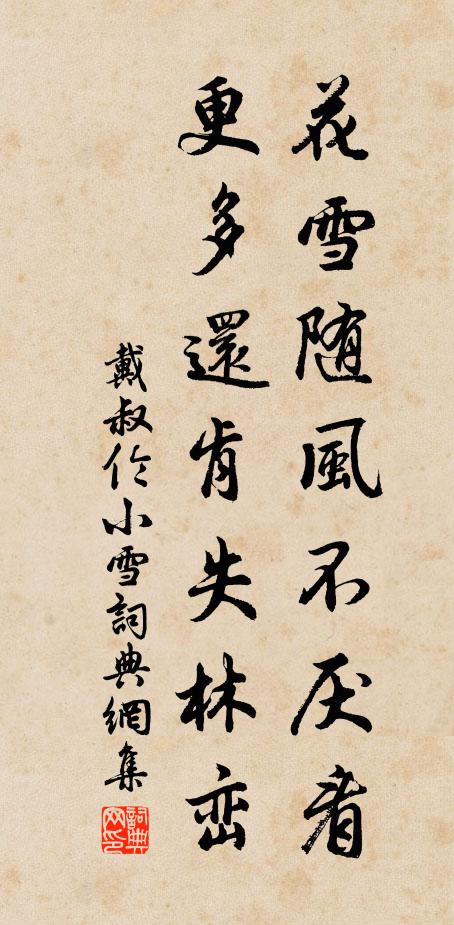 花雪随風不厌看
更多還肯失林峦
戴叔伦小雪詞典網集
詞典网印